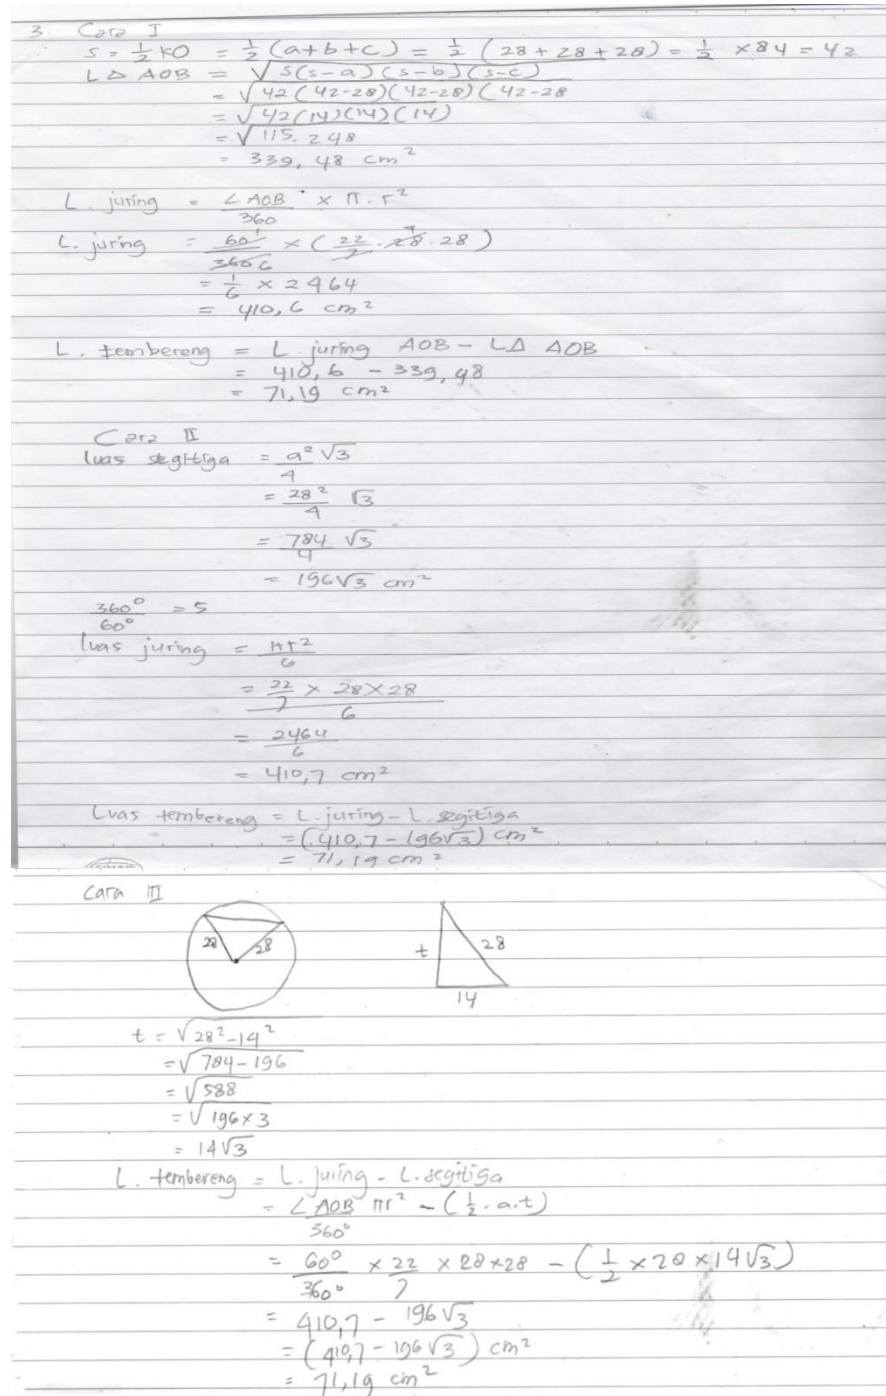 3. Cara I
S = 1/2 KO = 1/2 (a+b+c) = 1/2 (28 + 28 + 28) = 1/2 × 84 = 42
L Δ AOB = √s(s-a)(s-b)(s-c)
= √42(42-28)(42-28)(42-28
= √42(14)(14)(14)
= √115.248
= 339,48 cm²
L. juring = ∠AOB/360 × π.r²
L. juring = 60/360 1/6 × (22/7 . 28 4 . 28)
= 1/6 × 2464
= 410,6 cm²
L. tembereng = L. juring AOB - LΔ AOB
= 410,6 - 339,48
= 71,19 cm²
Cara II
luas segitiga = a²√3/4
= 28²/4 √3
= 784/4 √3
= 196√3 cm²
360°/60° = 5
luas juring = πr²/6
= 22/7 × 28×28/6
= 2464/6
= 410,7 cm²
Luas tembereng = L.juring - L.segitiga
= (410,7 - 196√3) cm²
= 71,19 cm²
Cara III
28 28 t 28
14
t = √28²-14²
= √784-196
= √588
= √196×3
= 14√3
L. tembereng = L. juring - L.segitiga
= ∠AOB/360° πr² - (1/2.a.t)
= 60°/360° × 22/7 × 28×28 - (1/2 ×28×14√3)
= 410,7 - 196√3
= (410,7 - 196√3) cm²
= 71,19 cm²